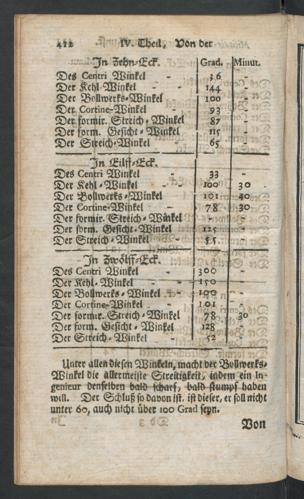 412 IV. Theil, Von der
In Zehn-Eck. Grad. Minut.
Des Centri Winkel - 36
Der Kehl-Winkel - 144
Der Bollwerks-Winkel 100
Der Cortine-Winkel 93
Der formir. Streich-Winkel 87
Der form. Gesicht-Winkel 115
Der Streich-Winkel - 65
In Eilff-Eck.
Des Centri Winkel 33
Der Kehl-Winkel - 100 30
Der Bollwerks-Winkel 101 40
Der Cortine-Winkel 78 30
Der formir. Streich-Winkel
Der form. Gesicht-Winkel 125
Der Streich-Winkel - 55
In Zwölff-Eck.
Des Centri Winkel 300
Der Kehl-Winkel - 150
Der Bollwerks-Winkel 100
Der Cortine-Winkel 101
Der formir. Streich-Winkel 78 30
Der form. Gesicht-Winkel 128
Der Streich-Winkel - 52
Unter allen diesen Winkeln, macht der Bollwerks-
Winkel die allermeiste Streitigkeit, indem ein In-
genieur denselben bald scharf, bald stumpf haben
will. Der Schluß so davon ist, ist dieser, er soll nicht
unter 60, auch nicht über 100 Grad seyn.
Von